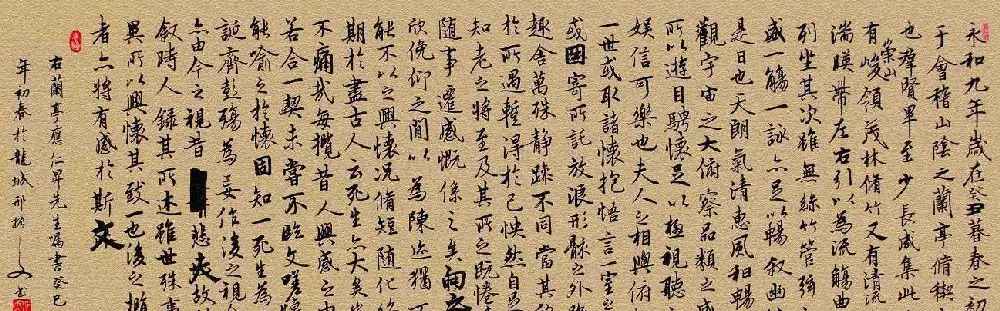 永和九年歲在癸丑暮春之初
于會稽山陰之蘭亭脩稧
也羣賢畢至少長咸集此
有崇山峻領茂林脩竹又有清流
湍暎帶左右引以為流觴曲
列坐其次雖無絲竹管弦
盛一觴一詠亦足以暢叙幽
是日也天朗氣清惠風和暢
觀宇宙之大俯察品類之盛
所以遊目騁懷足以極視聽
娛信可樂也夫人之相與俯
一世或取諸懷抱悟言一室
或因寄所託放浪形骸之外
趣舍萬殊靜躁不同當其欣
於所遇蹔得於己怏然自足
知老之將至及其所之既惓
隨事遷感慨係之矣向之
欣俛仰之間以為陳迹猶
能不以之興懷況脩短隨化
期於盡古人云死生亦大矣豈
不痛哉每攬昔人興感之由
若合一契未嘗不臨文嗟悼
能喻之於懷固知一死生為
誕齊彭殤為妄作後之視今
亦由今之視昔悲夫故
叙時人錄其所述雖世殊事
異所以興懷其致一也後之攬
者亦將有感於斯文
右蘭亭應仁昇先生囑書癸巳
年初春於龍城